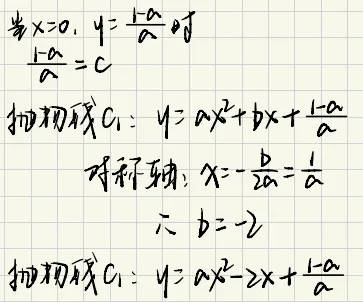 当x=0, y=\frac{1-a}{a}时
\frac{1-a}{a}=c
抛物线C₁: y=ax²+bx+\frac{1-a}{a}
对称轴: x=-\frac{b}{2a}=\frac{1}{a}
∴ b=-2
抛物线C₁: y=ax²-2x+\frac{1-a}{a}